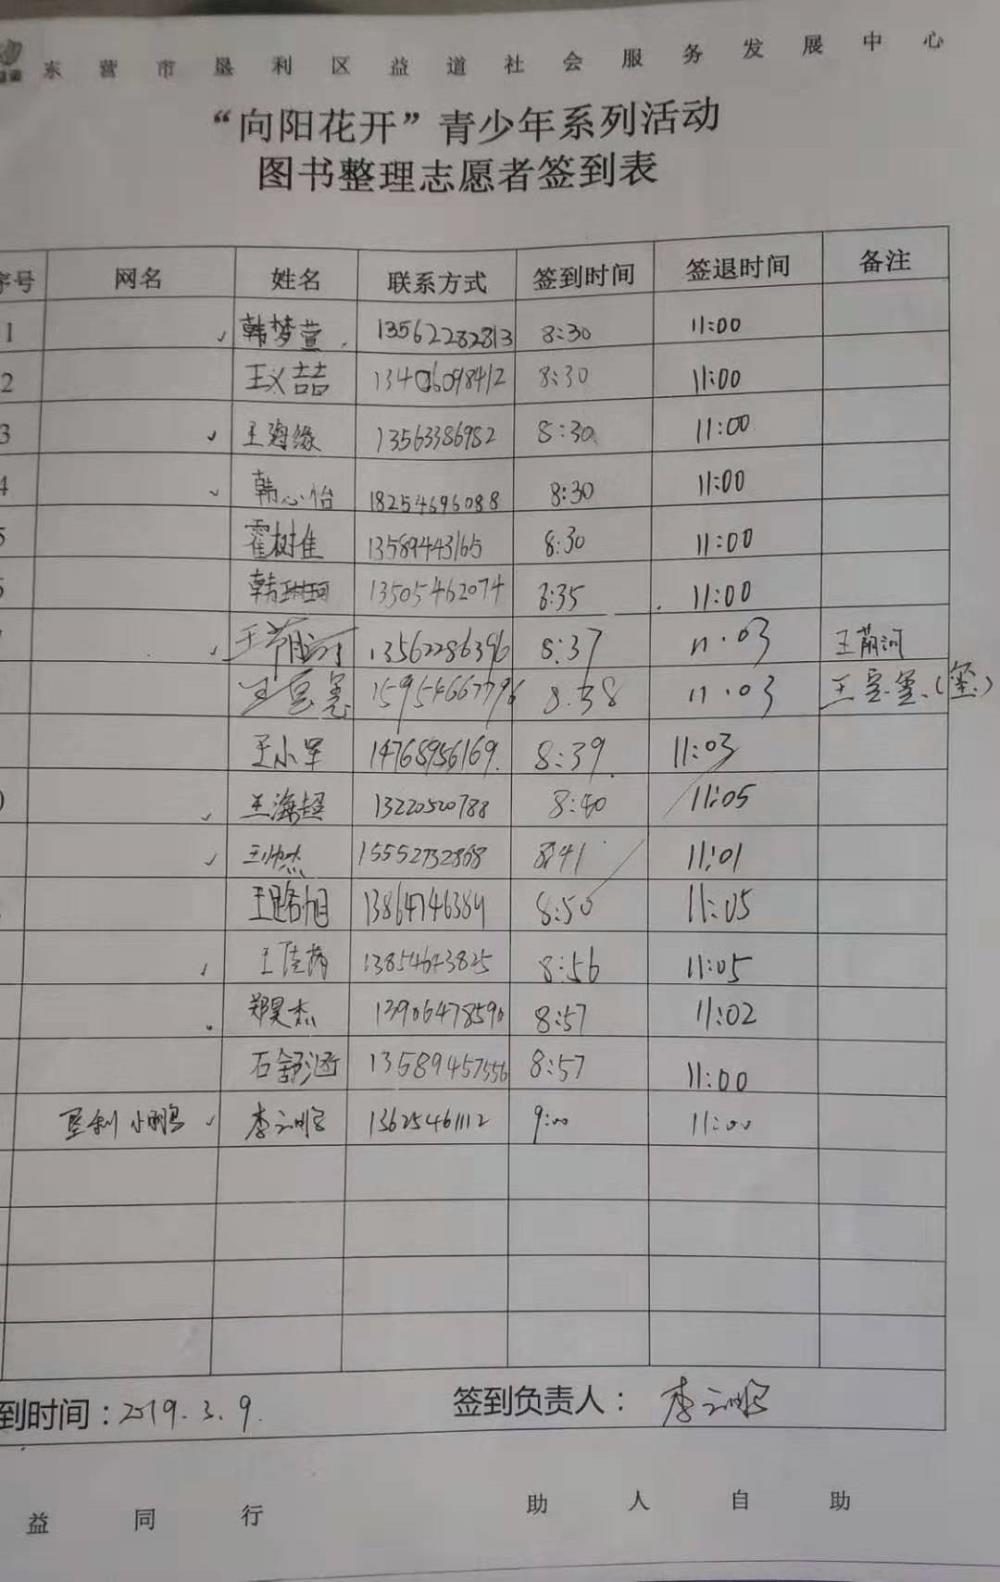 东营市垦利区益道社会服务发展中心
“向阳花开”青少年系列活动
图书整理志愿者签到表
序号 网名 姓名 联系方式 签到时间 签退时间 备注
1 韩梦萱 13562282813 8:30 11:00
2 王义喆 13406098412 8:30 11:00
3 王海缘 13563386982 8:30 11:00
4 韩心怡 18254696088 8:30 11:00
5 霍树佳 13589443165 8:30 11:00
韩琳珂 13505462074 8:35 11:00
王萌河 13562286396 8:37 11.03 王萌河
王 15954667796 8.38 11.03 王
王小军 14768956169. 8:39 11:03
王海超 13220520788 8:40 11:05
王帅杰 15552732868 8:41 11:01
王路旭 13864746384 8:50 11:05
王佳萌 13854643825 8:56 11:05
郑昊杰 13906478590 8:57 11:02
石舒涵 13589457556 8:57 11:00
垦利小鹏 李云鹏 13625461112 9:00 11:00
到时间：2019.3.9. 签到负责人：李云鹏
益同行 助人自助